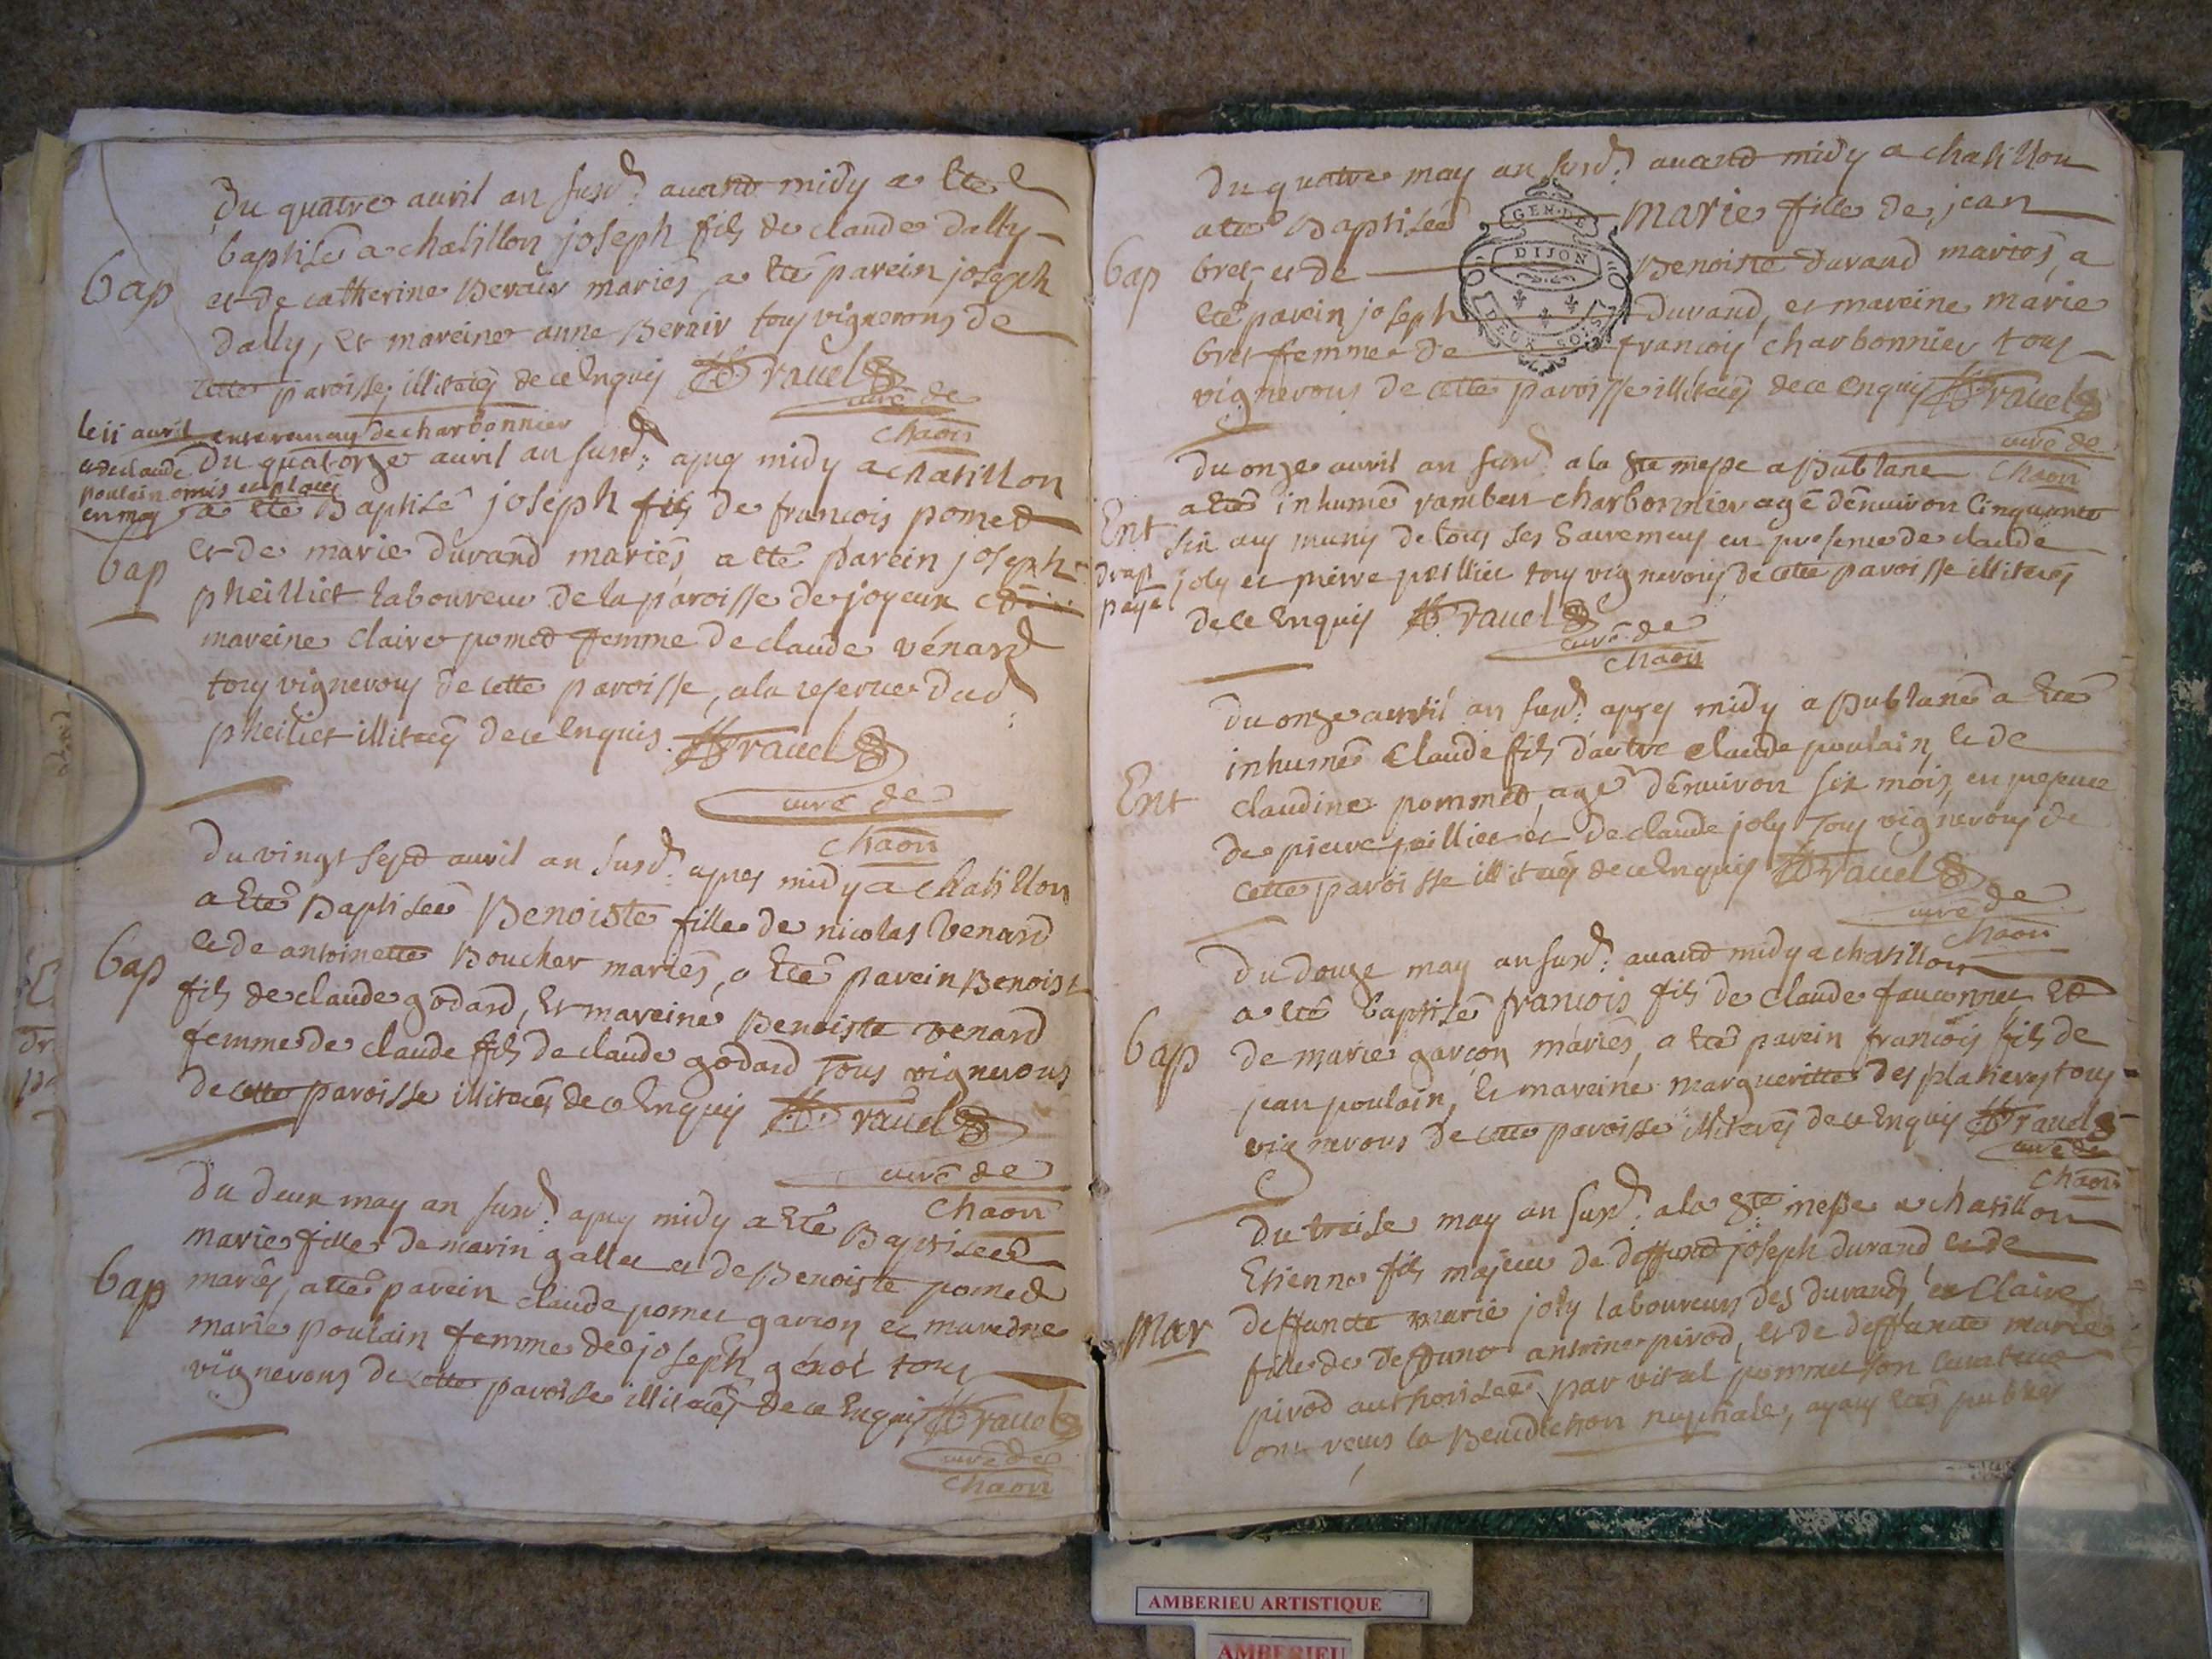 Du quatre auril an susd. auand midy a Eté
baptisé a chatillon joseph fils de claude dally
Bap
et de catherine Beraür mariés, a Eté parein joseph
dally, Et mareine anne Berair tous vignerons de
cette paroisse, illiterés de ce Enquis ravel
curé de
chaon
le 11 auril enteremens de charbonnier
et de claude
poulain omis et places
en may
Du quatorze auril an susd. apres midy a chatillon
a Eté Baptisé joseph fils de francois pomed
Bap
et de marie durand mariés, a Eté parein joseph
pheilliet laboureur de la paroisse de joyeux
mareine claire pomed femme de claude vénard
tous vignerons de cette paroisse, a la reserue dud.
pheiliet illiterés de ce Enquis. ravel
curé de
chaon
Du vingt sept auril an susd. apres midy a chatillon
a Eté Baptisée Benoiste fille de nicolas venard
Bap
et de antoinette Boucher mariés, a Eté parein Benoist
fils de claude godard, Et mareine Benoiste venard
femme de claude fils de claude godard Tous vignerons
de cette paroisse illiterés de ce Enquis ravel
curé de
chaon
Du deux may an susd. apres midy a Eté Baptiseé
marie fille de marin gallet et de Benoiste pomed
Bap
mariés, a eté parein claude pomet garcon et mareine
marie poulain femme de joseph génot tous
vignerons de cette paroisse illiterés de ce Enquis ravel
curé de
chaon
Du quatre may an susd. auand midy a chatillon
a eté Baptisée marie fille de jean
Bap
bret, et de Benoiste durand mariés, a
Eté parein joseph durand, et mareine marie
bret femme de francois charbonnier tous
vignerons de cette paroisse illiterés de ce Enquis ravel
curé de
chaon
GEN. DE
DIJON
DEUX SOLS
Du onze auril an susd. a la Ste messe a Publane
a Eté inhumé rambert charbonnier agé d'enuiron cinquante
Ent
six ans muny de tous ses Sacremens en presence de claude
drap
paye
joly et pierre peillier tous vignerons de cette paroisse illiterés
de ce Enquis ravel
curé de
chaon
Du onze auril an susd. apres midy a Publane a Eté
inhumé Claude fils d'autre claude poulain, et de
Ent
claudine pommed, agé d'enuiron six mois, en presence
de pierre peillier et de claude joly Tous vignerons de
cette paroisse illiterés de ce Enquis ravel
curé de
chaon
Du Douze may an susd. auand midy a chatillon
a eté baptisé francois fils de claude fauconnet Et
Bap
de marie garçon mariés, a Eté parein francois fils de
jean poulain, Et mareine margueritte des platieres tous
vignerons de cette paroisse illiterés de ce Enquis ravel
curé de
chaon
Du treise may an susd. a la Ste messe a chatillon
Etienne fils majeur de deffund joseph durand, et de
Mar
deffuncte marie joly laboureurs des durands, et Claire
fille de deffunct antoine pirod, et de deffuncte marie
pirod authorisée par vital pommet son curateur
ont receus la Benediction nuptiale, ayans Etés publiés
AMBERIEU ARTISTIQUE
AMBERIEU